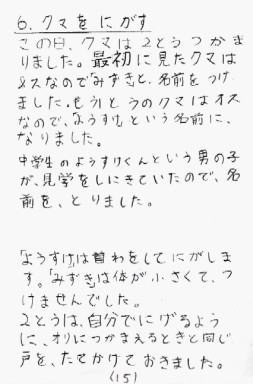 6.クマをにがす
この日、クマは2とうつかま
りました。最初に見たクマは
メスなので「みずき」と、名前をつけ
ました。もう1とうのクマはオス
なので、「ようすけ」という名前に、
なりました。
中学生のようすけくんという男の子
が、見学をしにきていたので、名
前を、とりました。
「ようすけ」は首わをしてにがしま
す。「みずき」は体が小さくて、つ
けませんでした。
2とうは、自分でにげるよう
に、オリにつかまえるときと同じ
戸を、たてかけておきました。
(15)